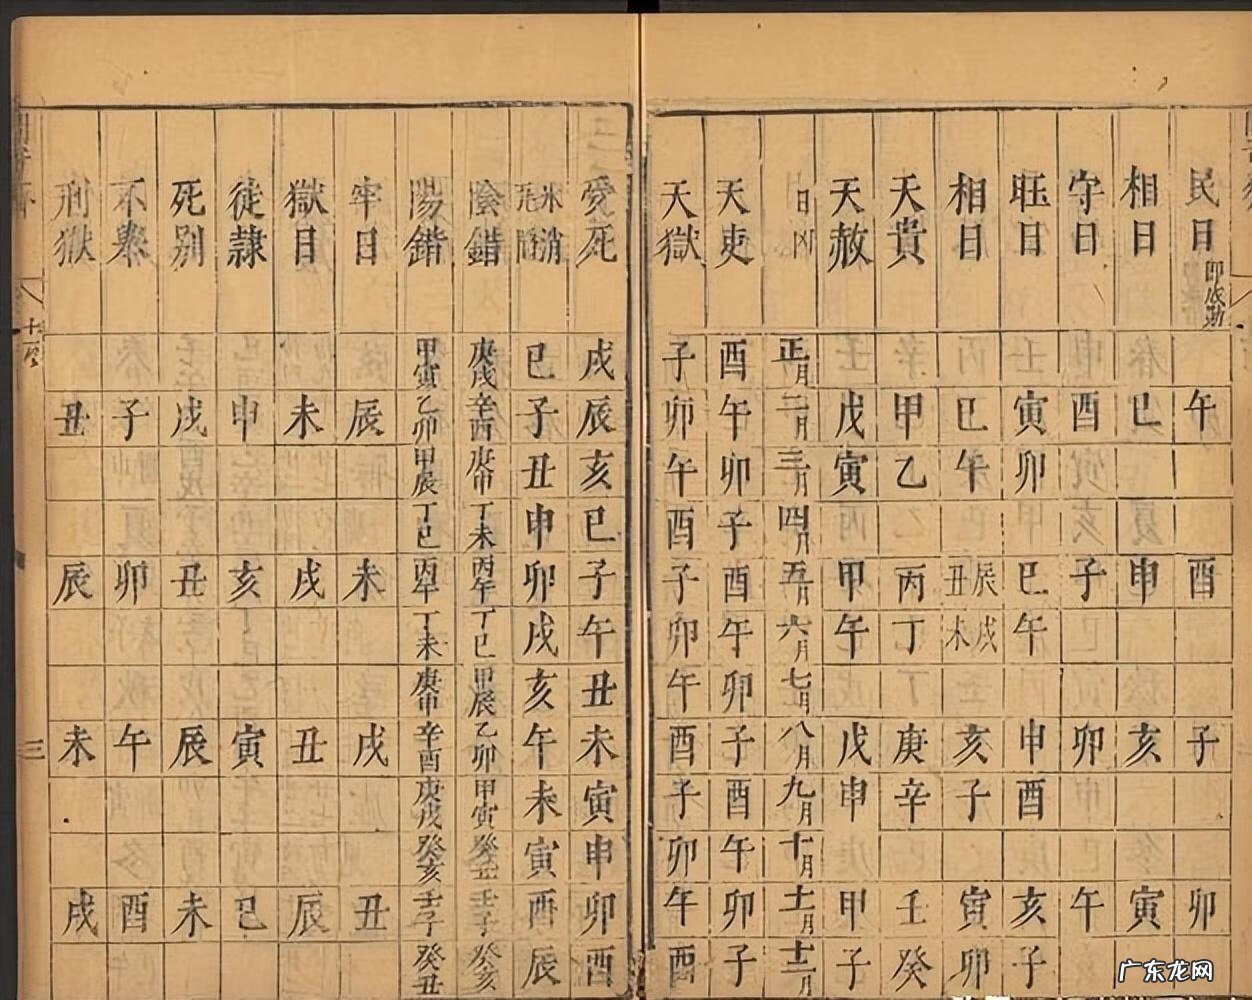 民日
午
酉
子
卯
相日
巳
申
亥
寅
守日
酉
子
卯
午
旺日
寅
卯
巳
午
申
酉
亥
子
相日
巳
午
辰丑
戌未
亥
子
寅
卯
天貴
甲
乙
丙
丁
庚
辛
壬
癸
天赦
戊
寅
甲
午
戊
申
甲
子
日凶
正月
二月
三月
四月
五月
六月
七月
八月
九月
十月
十一月
十二月
天吏
酉
午
卯
子
酉
午
卯
子
酉
午
卯
子
天獄
子
卯
午
酉
子
卯
午
酉
子
卯
午
酉
受死
戌
辰
亥
巳
子
午
丑
未
寅
申
卯
酉
冰消
巳
子
丑
申
卯
戌
亥
午
未
寅
酉
辰
陰錯
庚戌
辛酉
庚申
丁未
丙午
丁巳
甲辰
乙卯
甲寅
癸丑
壬子
癸亥
陽錯
甲寅
乙卯
甲辰
丁巳
丙午
丁未
庚申
辛酉
庚戌
癸亥
壬子
癸丑
牢日
辰
未
戌
丑
獄日
未
戌
丑
辰
徒隸
申
亥
寅
巳
死別
戌
丑
辰
未
不舉
子
卯
午
酉
刑獄
丑
辰
未
戌
三
广东龙网